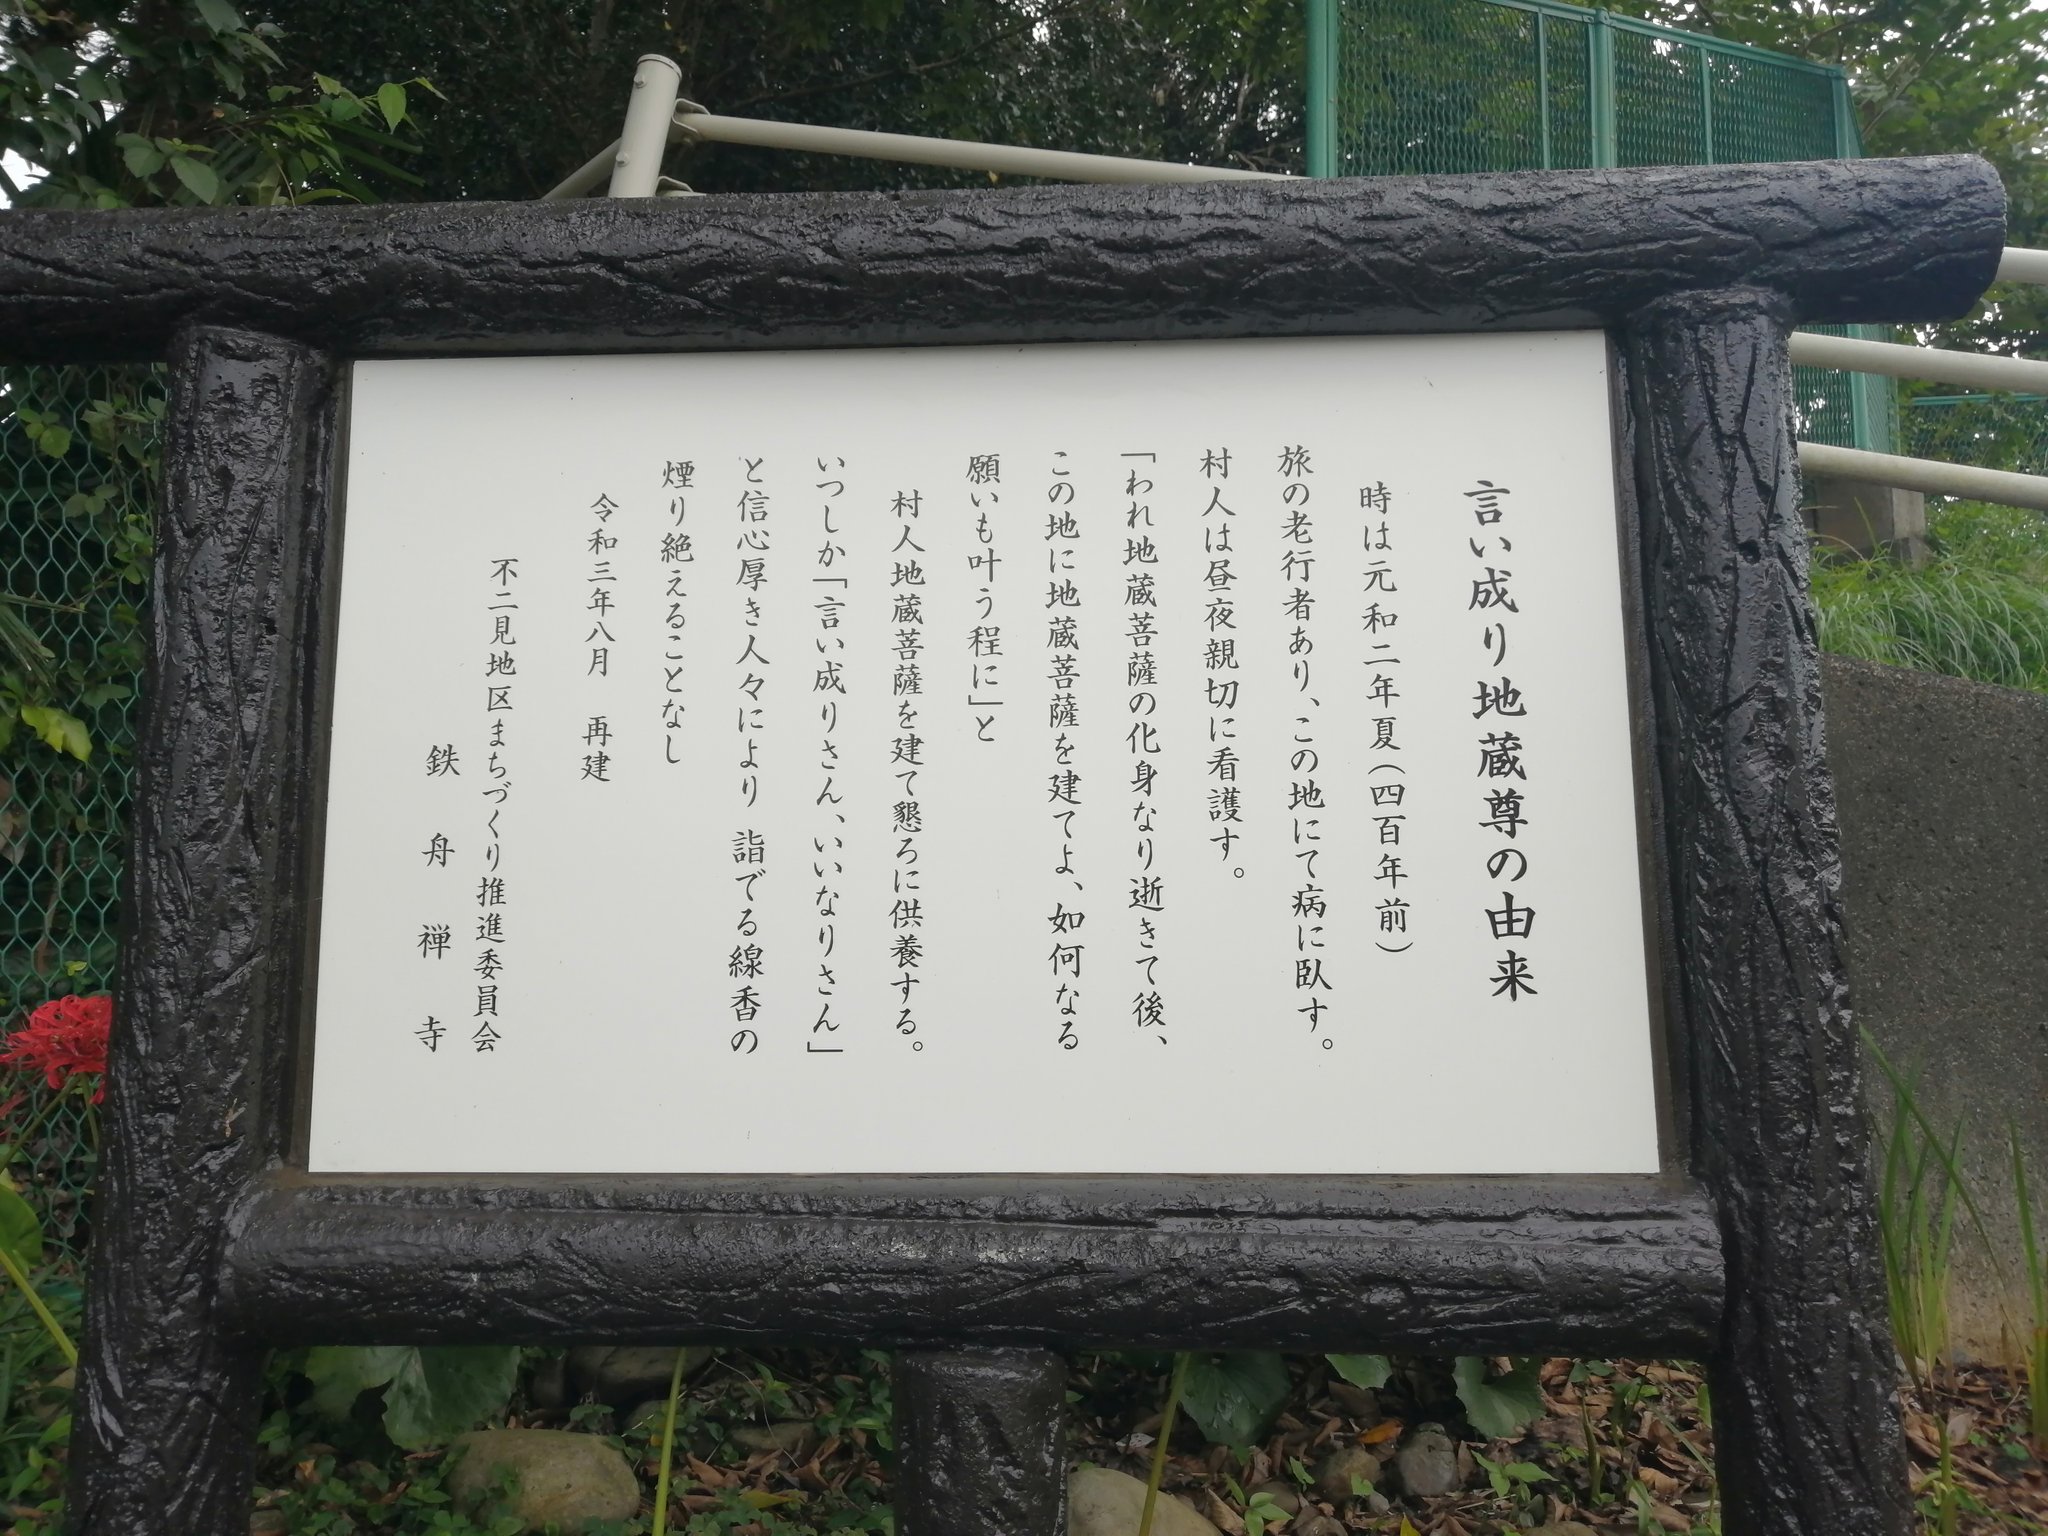 言い成り地蔵尊の由来
時は元和二年夏（四百年前）
旅の老行者あり、この地にて病に臥す。
村人は昼夜親切に看護す。
「われ地蔵菩薩の化身なり逝きて後、
この地に地蔵菩薩を建てよ、如何なる
願いも叶う程に」と
村人地蔵菩薩を建て懇ろに供養する。
いつしか「言い成りさん、いいなりさん」
と信心厚き人々により 詣でる線香の
煙り絶えることなし
令和三年八月　再建
不二見地区まちづくり推進委員会
鉄舟禅寺